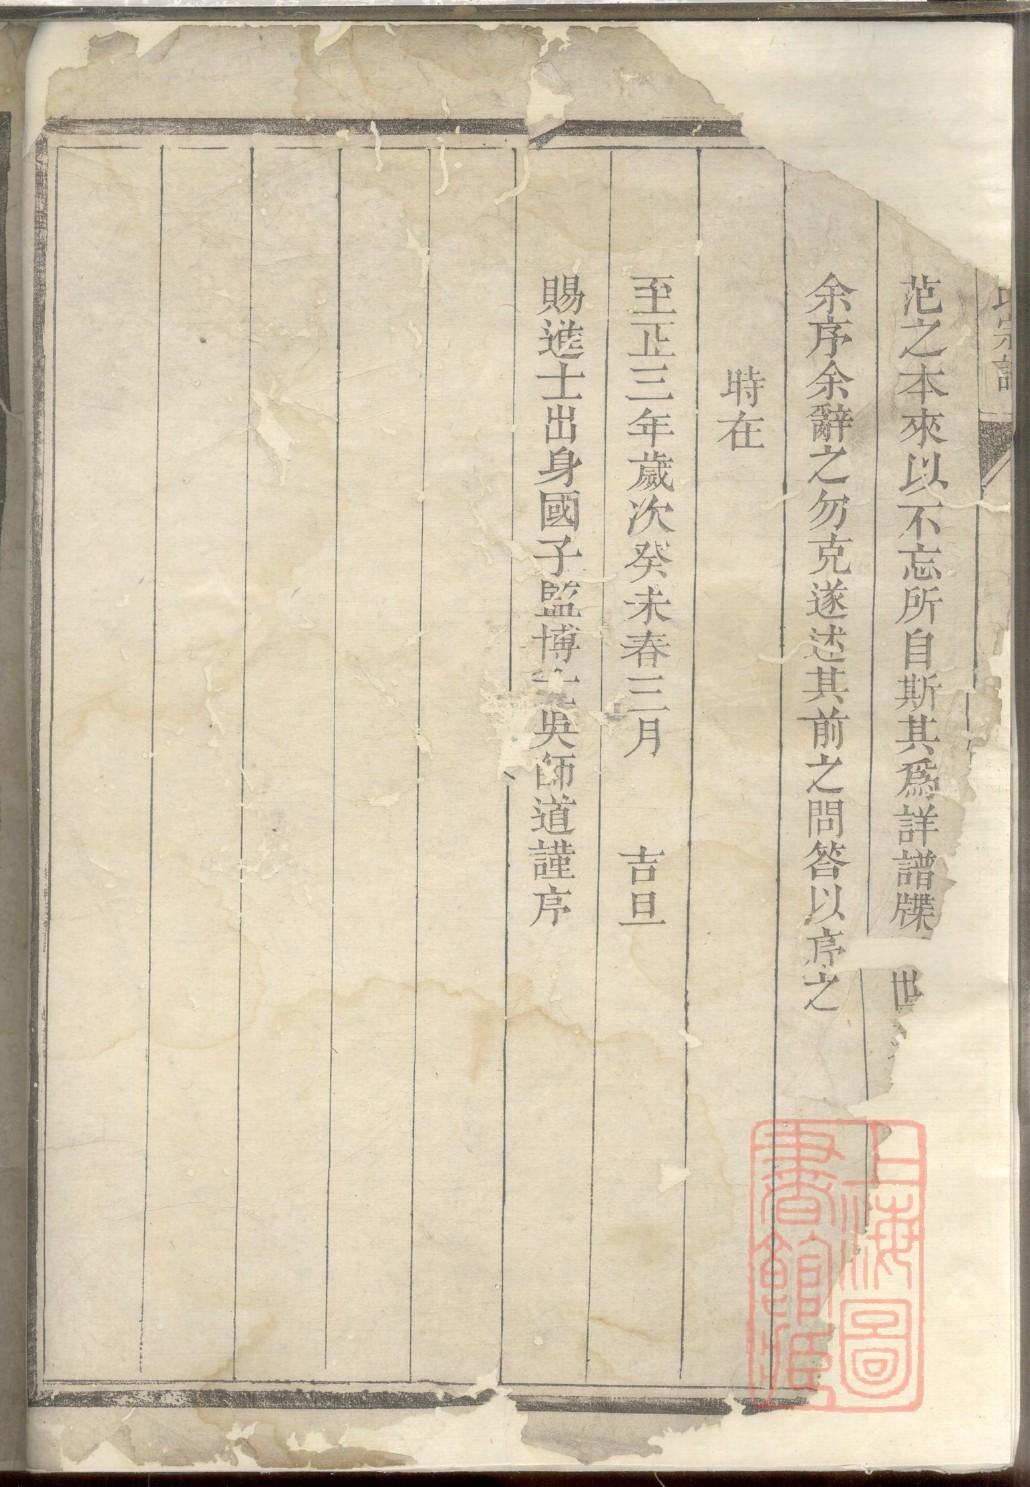 宗譜
范之本來以不忘所自斯其為詳譜牒世
余序余辭之勿克遂述其前之問答以序之
時在
至正三年歲次癸未春三月 吉旦
賜進士出身國子監博士吳師道謹序
上海圖書館藏